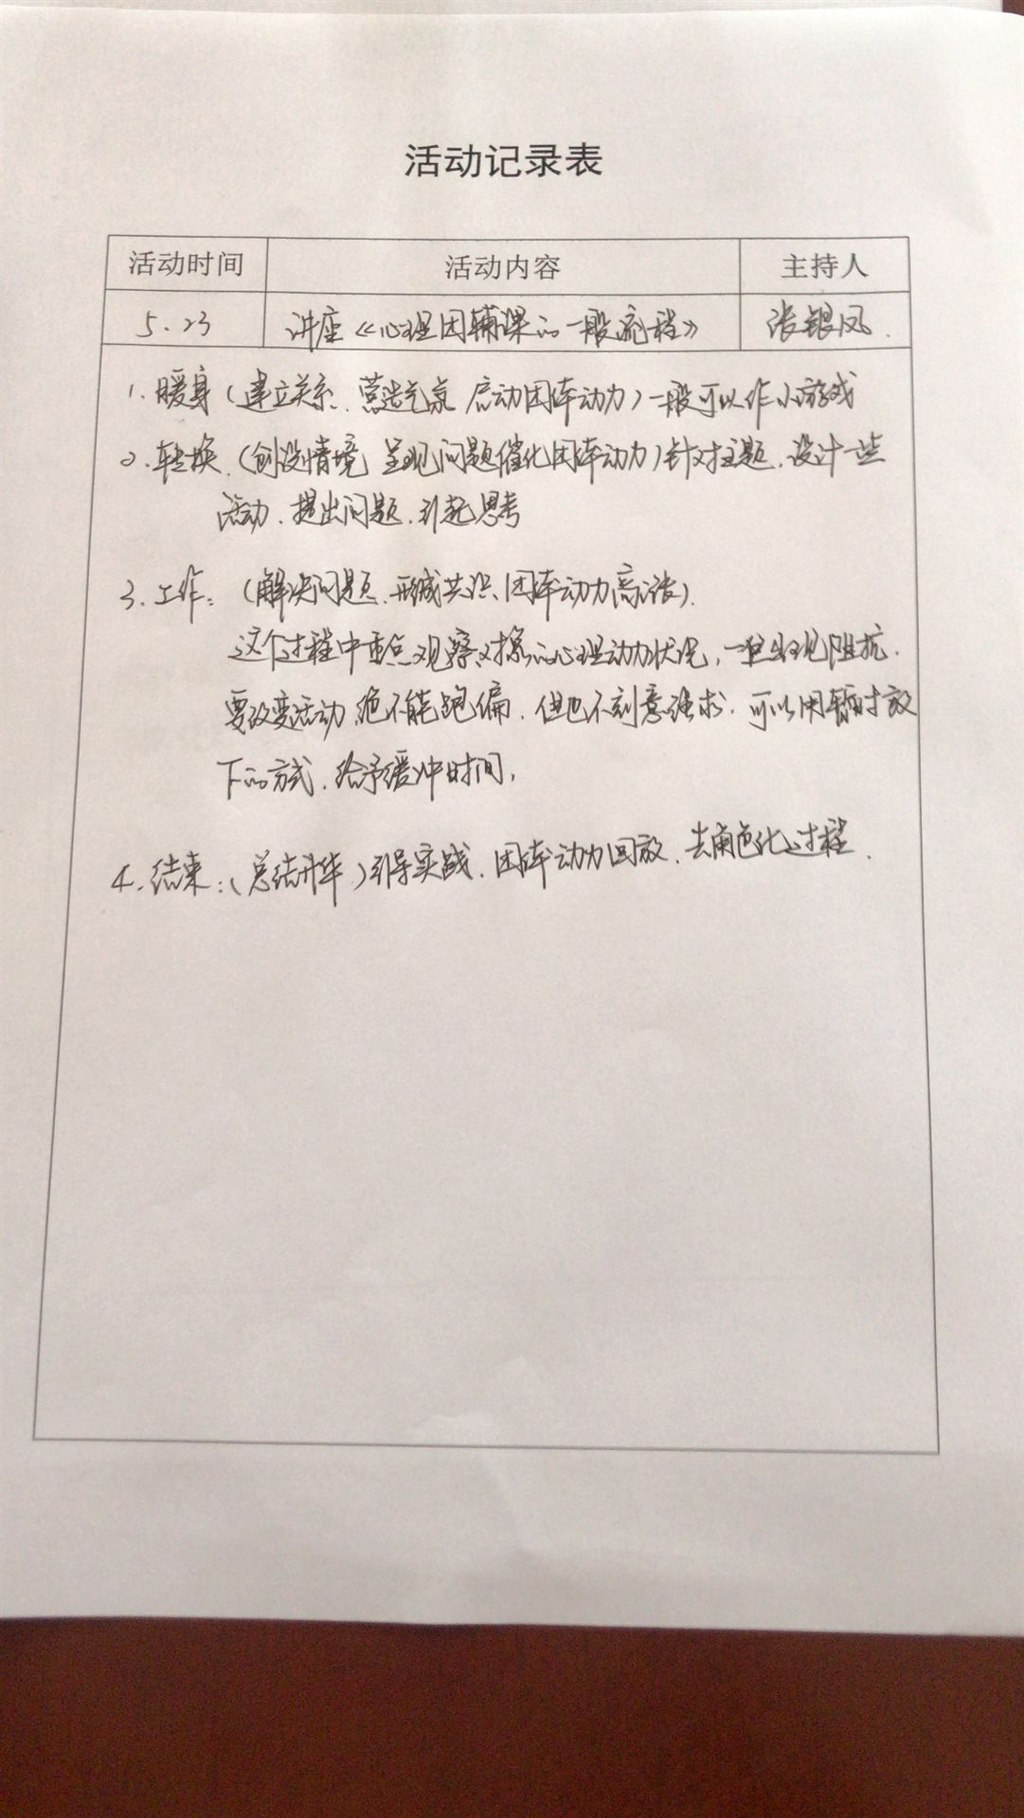 活动记录表
活动时间 活动内容 主持人
5.23 讲座《心理团辅课的一般流程》 张银凤.
1. 暖身(建立关系、营造气氛 启动团体动力)一般可以作小游戏
2. 转换.(创设情境 呈现问题催化团体动力)针对主题.设计一些
活动.提出问题.引起思考
3. 工作:(解决问题.形成共识.团体动力高涨).
这个过程中重点观察对象的心理动力状况,一旦出现阻抗.
要改变活动.绝不能跑偏.但也不刻意强求.可以用暂时放
下的方式.给予缓冲时间.
4. 结束:(总结升华)引导实战.团体动力回放.去角色化过程.